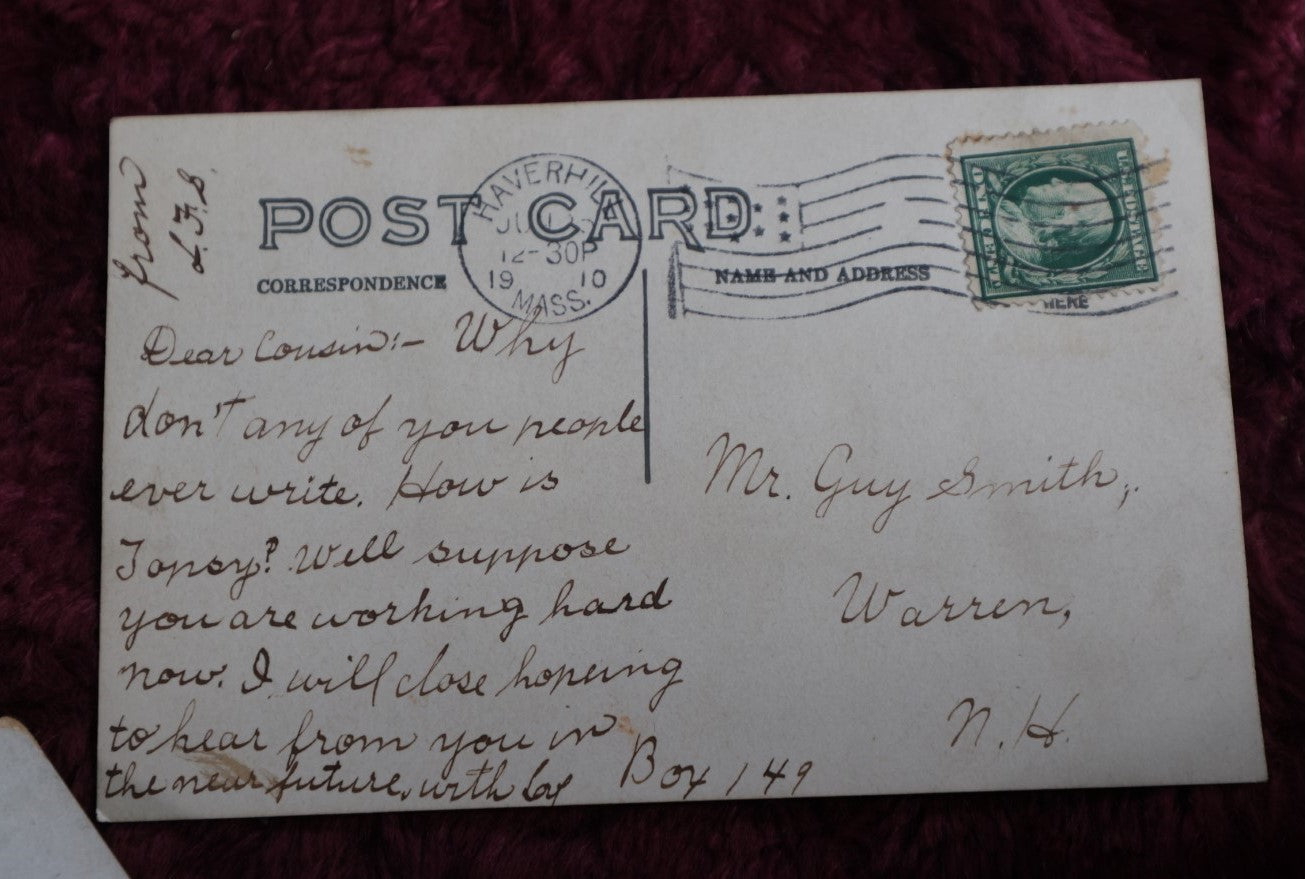 from
L.F.S.
POST CARD
HAVERHILL
12-30P
19 10
MASS.
CORRESPONDENCE
NAME AND ADDRESS
HERE
Dear Cousin:- Why
don't any of you people
ever write. How is
Topsy? Well suppose
you are working hard
now. I will close hopeing
to hear from you in
the near future, with
Box 149
Mr. Guy Smith,
Warren,
N.H.